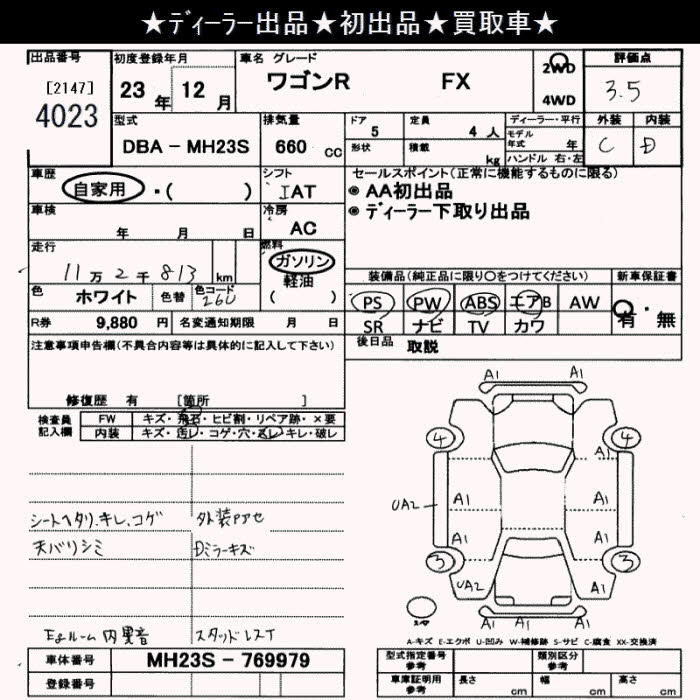 ★ディーラー出品★初出品★買取車★
出品番号 初度登録年月 車名 グレード 評価点
[2147] 23年 12月 ワゴンR FX 2WD 3.5
4023 4WD
型式 排気量 ドア 定員 ディーラー・平行 外装 内装
DBA － MH23S 660 cc 5 4 人 モデル年式 年 C D
形状 積載 kg ハンドル 右・左
車歴 シフト セールスポイント（正常に機能するものに限る）
自家用 ・（ ） IAT ◉ AA初出品
車検 冷房 ◉ ディーラー下取り出品
年 月 日 AC
走行 燃料
11万2千813km ガソリン 装備品（純正品に限り○をつけてください） 新車保証書
色 色替 色コード 軽油
ホワイト 26U （ ） PS PW ABS エアB AW 有・無
R券 9,880 円 名変通知期限 月 日 SR ナビ TV カワ
注意事項申告欄（不具合内容等は具体的に記入して下さい） 後日品 取説
修復歴 有 ［箇所 ］
検査員記入欄 FW キズ・飛石・ヒビ割・リペア跡・×要
内装 キズ・汚レ・コゲ・穴・スレ・キレ・破レ
A1 A1
4 4
A1 A1
UA2 A1 A1
3 3
A1
UA2 A1
A1 A1
シートヘタリ.キレ.コゲ 外装アセ
天バリシミ Dミラーキズ
Egルーム内異音 スタッドレスT
A-キズ E-エクボ U-凹み W-補修跡 S-サビ C-腐食 XX-交換済
車体番号 MH23S － 769979 型式指定番号 参考 類別区分 参考
登録番号 車庫証明用 参考 長さ cm 幅 cm 高さ cm